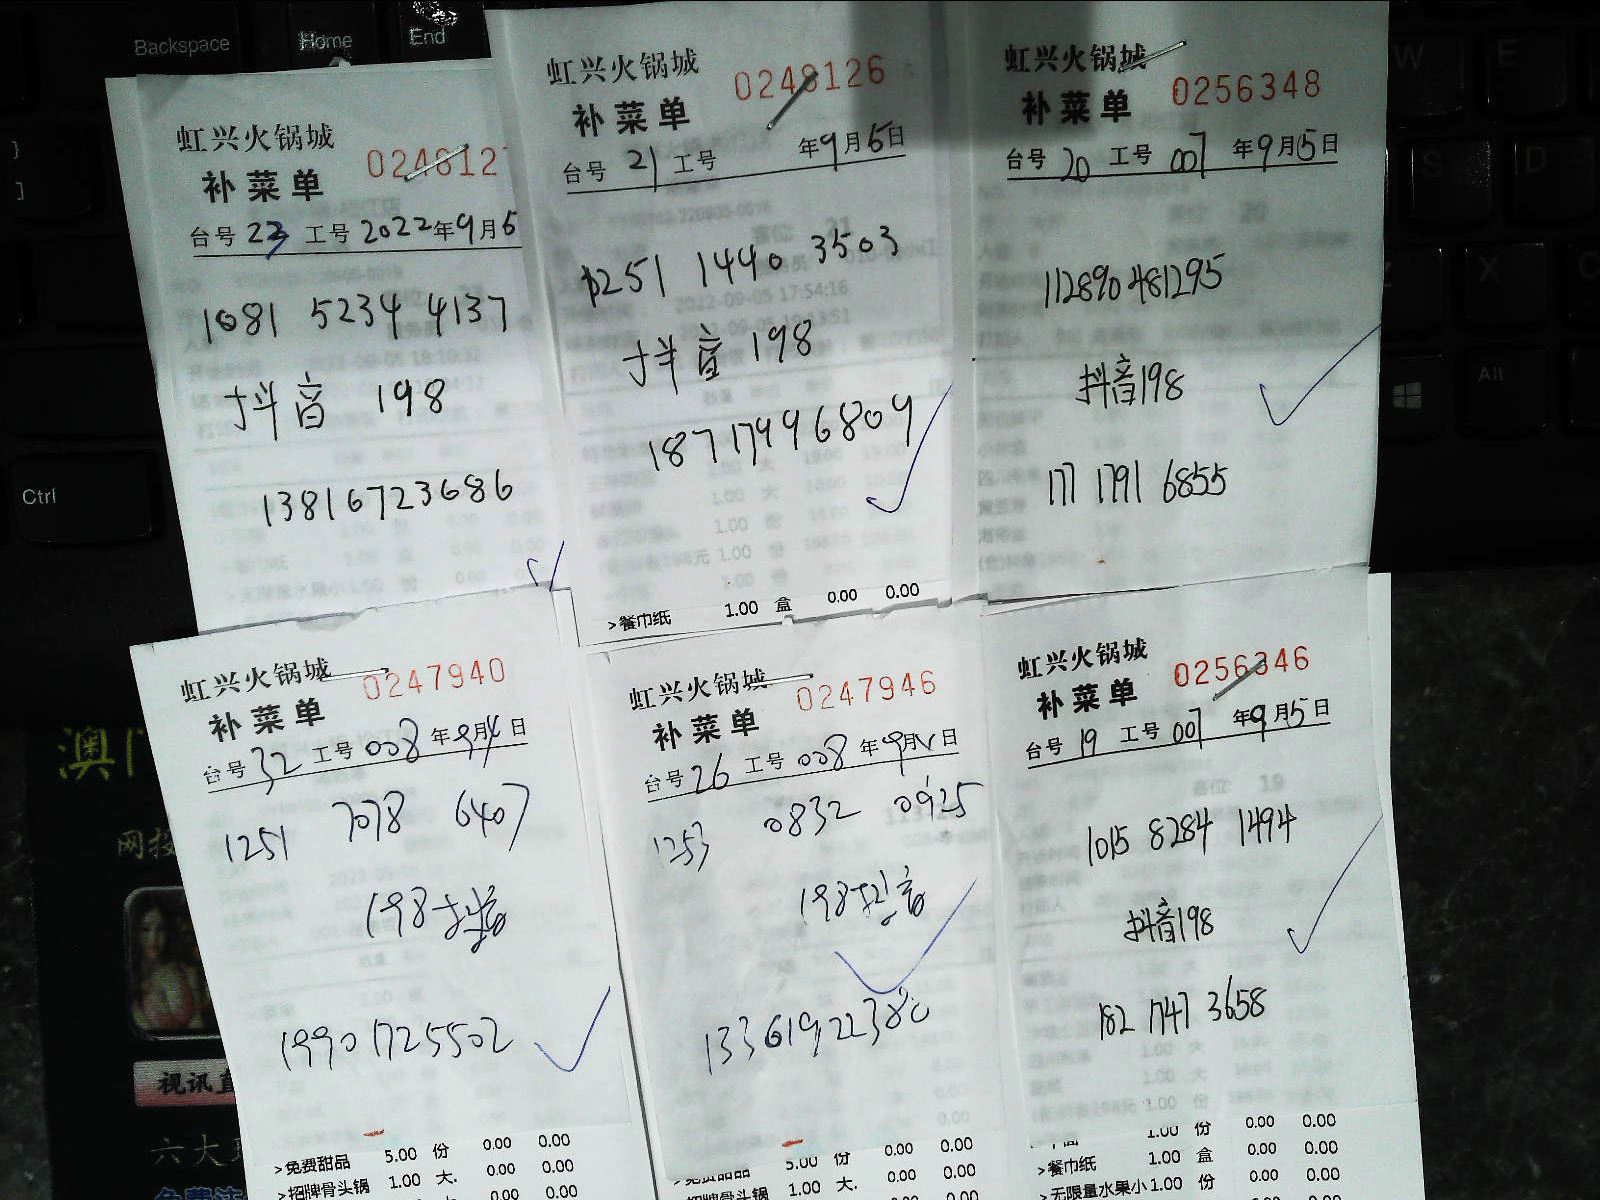 Backspace
Home
End
虹兴火锅城
024812
补菜单
台号 23 工号 2022年9月5
1081 5234 4137
抖音 198
13816723686
虹兴火锅城
0248126
补菜单
台号 21 工号 年9月5日
1251 1440 3503
抖音 198
18717996809
>餐巾纸 1.00 盒 0.00 0.00
虹兴火锅城
0256348
补菜单
台号 20 工号 007 年9月5日
112890481295
抖音198
177 1791 6855
W
E
S
D
Z
X
Alt
Ctrl
虹兴火锅城
0247940
补菜单
台号 32 工号 008 年9月4日
1251 7078 6407
198抖音
19901725502
>免费甜品 5.00 份 0.00 0.00
>招牌骨头锅 1.00 大. 0.00 0.00
虹兴火锅城
0247946
补菜单
台号 26 工号 008 年9月 日
1253 0832 0925
198抖音
13361922380
>免费甜品 5.00 份 0.00 0.00
招牌骨头锅 1.00 大. 0.00 0.00
虹兴火锅城
0256346
补菜单
台号 19 工号 007 年9月5日
1015 8284 1494
抖音198
182 1747 3658
1.00 份 0.00 0.00
>餐巾纸 1.00 盒 0.00 0.00
>无限量水果小 1.00 份 0.00 0.00
网投
视讯直
六大